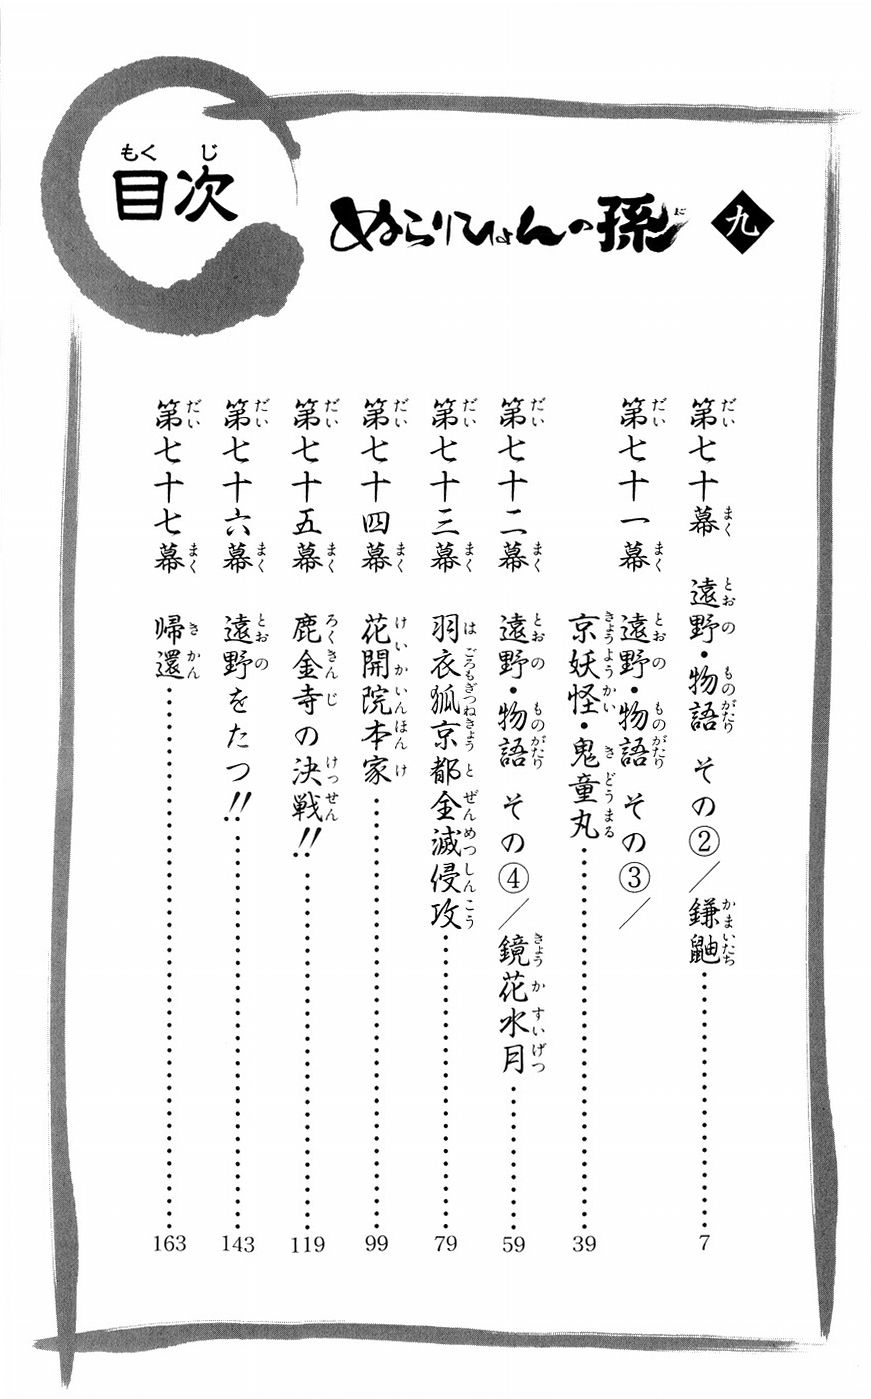 目次
ぬらりひょんの孫
九
第七十幕 遠野・物語 その②／鎌鼬……7
第七十一幕 遠野・物語 その③／
京妖怪・鬼童丸……39
第七十二幕 遠野・物語 その④／鏡花水月……59
第七十三幕 羽衣狐京都全滅侵攻……79
第七十四幕 花開院本家……99
第七十五幕 鹿金寺の決戦!!……119
第七十六幕 遠野をたつ!!……143
第七十七幕 帰還……163